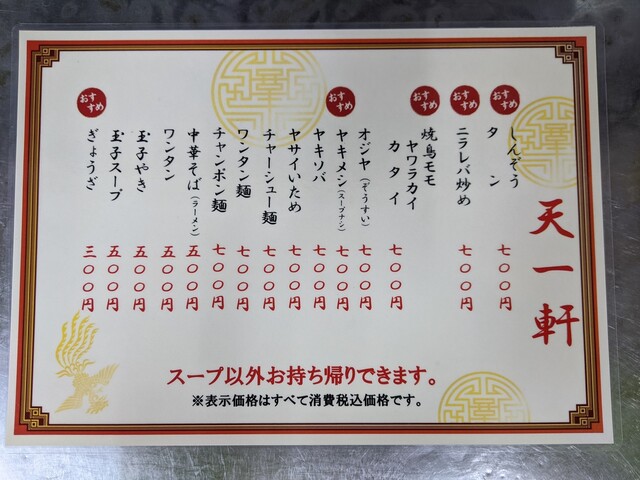 天一軒
おすすめ
しんぞう
タン 七〇〇円
おすすめ
ニラレバ炒め 七〇〇円
おすすめ
焼鳥モモ
ヤワラカイ
カタイ 七〇〇円
オジヤ(ぞうすい) 七〇〇円
おすすめ
ヤキメシ(スープナシ) 七〇〇円
ヤキソバ 七〇〇円
ヤサイいため 七〇〇円
チャーシュー麺 七〇〇円
ワンタン麺 七〇〇円
チャンポン麺 七〇〇円
中華そば(ラーメン) 五〇〇円
ワンタン 五〇〇円
玉子やき 五〇〇円
玉子スープ 五〇〇円
おすすめ
ぎょうざ 三〇〇円
スープ以外お持ち帰りできます。
※表示価格はすべて消費税込価格です。